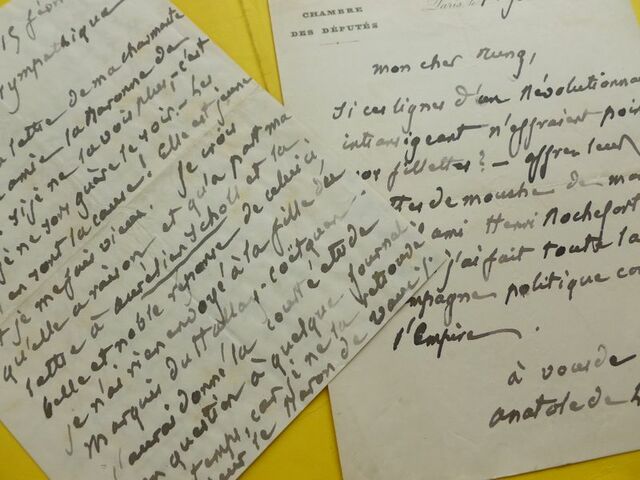 15 févr
sympathique
lettre de ma charmante
amie la Baronne de
si je ne la vois plus, c'est
je ne sors guère le soir. – Les
en sont la cause! Elle est jeune
et je me fais vieux. Je crois
qu'elle a raison et qu'à part ma
lettre à Aurélien Scholl et la
belle et noble réponse de celui-ci
je n'ai rien envoyé à la fille du
Marquis du Hallay-Coëtquen.
J'aurai donné la
en question à quelque journal
temps, car je ne la retrouve
Baron de Vaux!
CHAMBRE
DES DÉPUTÉS
Paris, le
mon cher
Si ces lignes d'un Révolutionna
intransigeant n'effraient poin
vos fillettes? – offrez leur
de mouche de mo
ami Henri Rochefort
j'ai fait toute la
mpagne politique co
l'Empire.
à vous de
anatole de